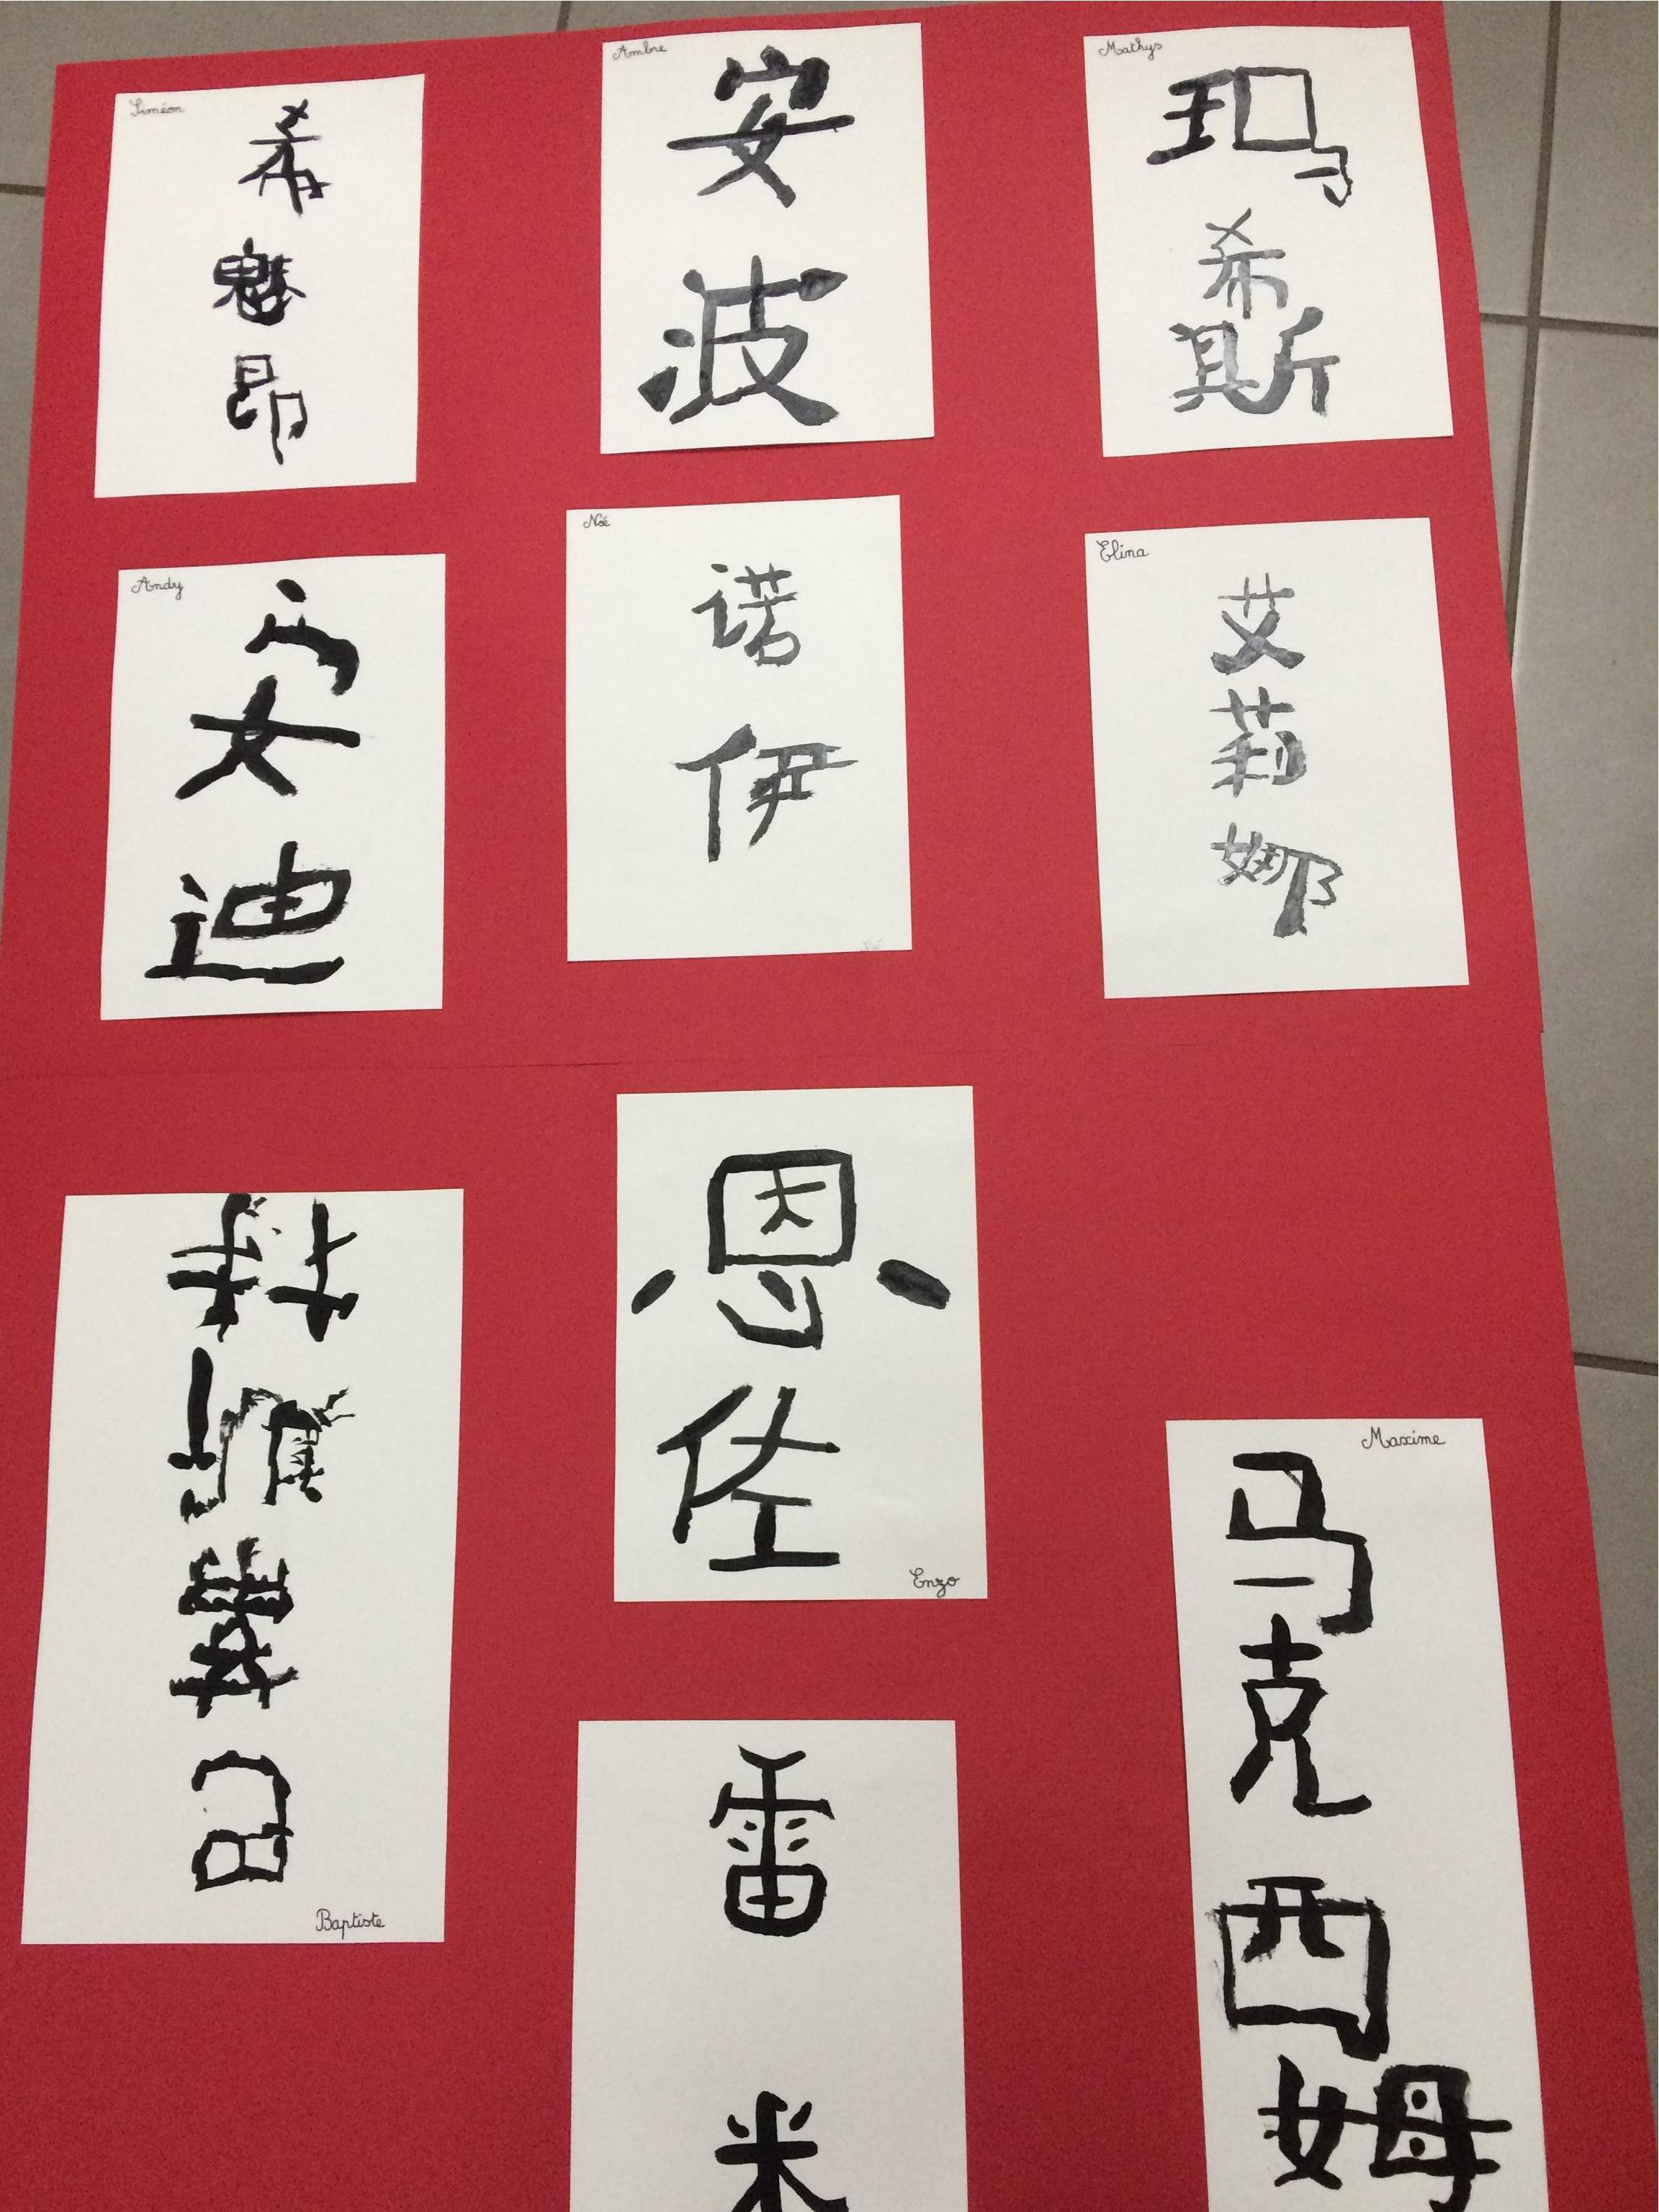 Siméon
希
魅
昂
Ambre
安
波
Mathys
玛
希
斯
Andy
安
迪
Noé
诺
伊
Elina
艾
莉
娜
巴
蒂
斯
特
Baptiste
恩
佐
Enzo
雷
米
Maxime
马
克
西
姆